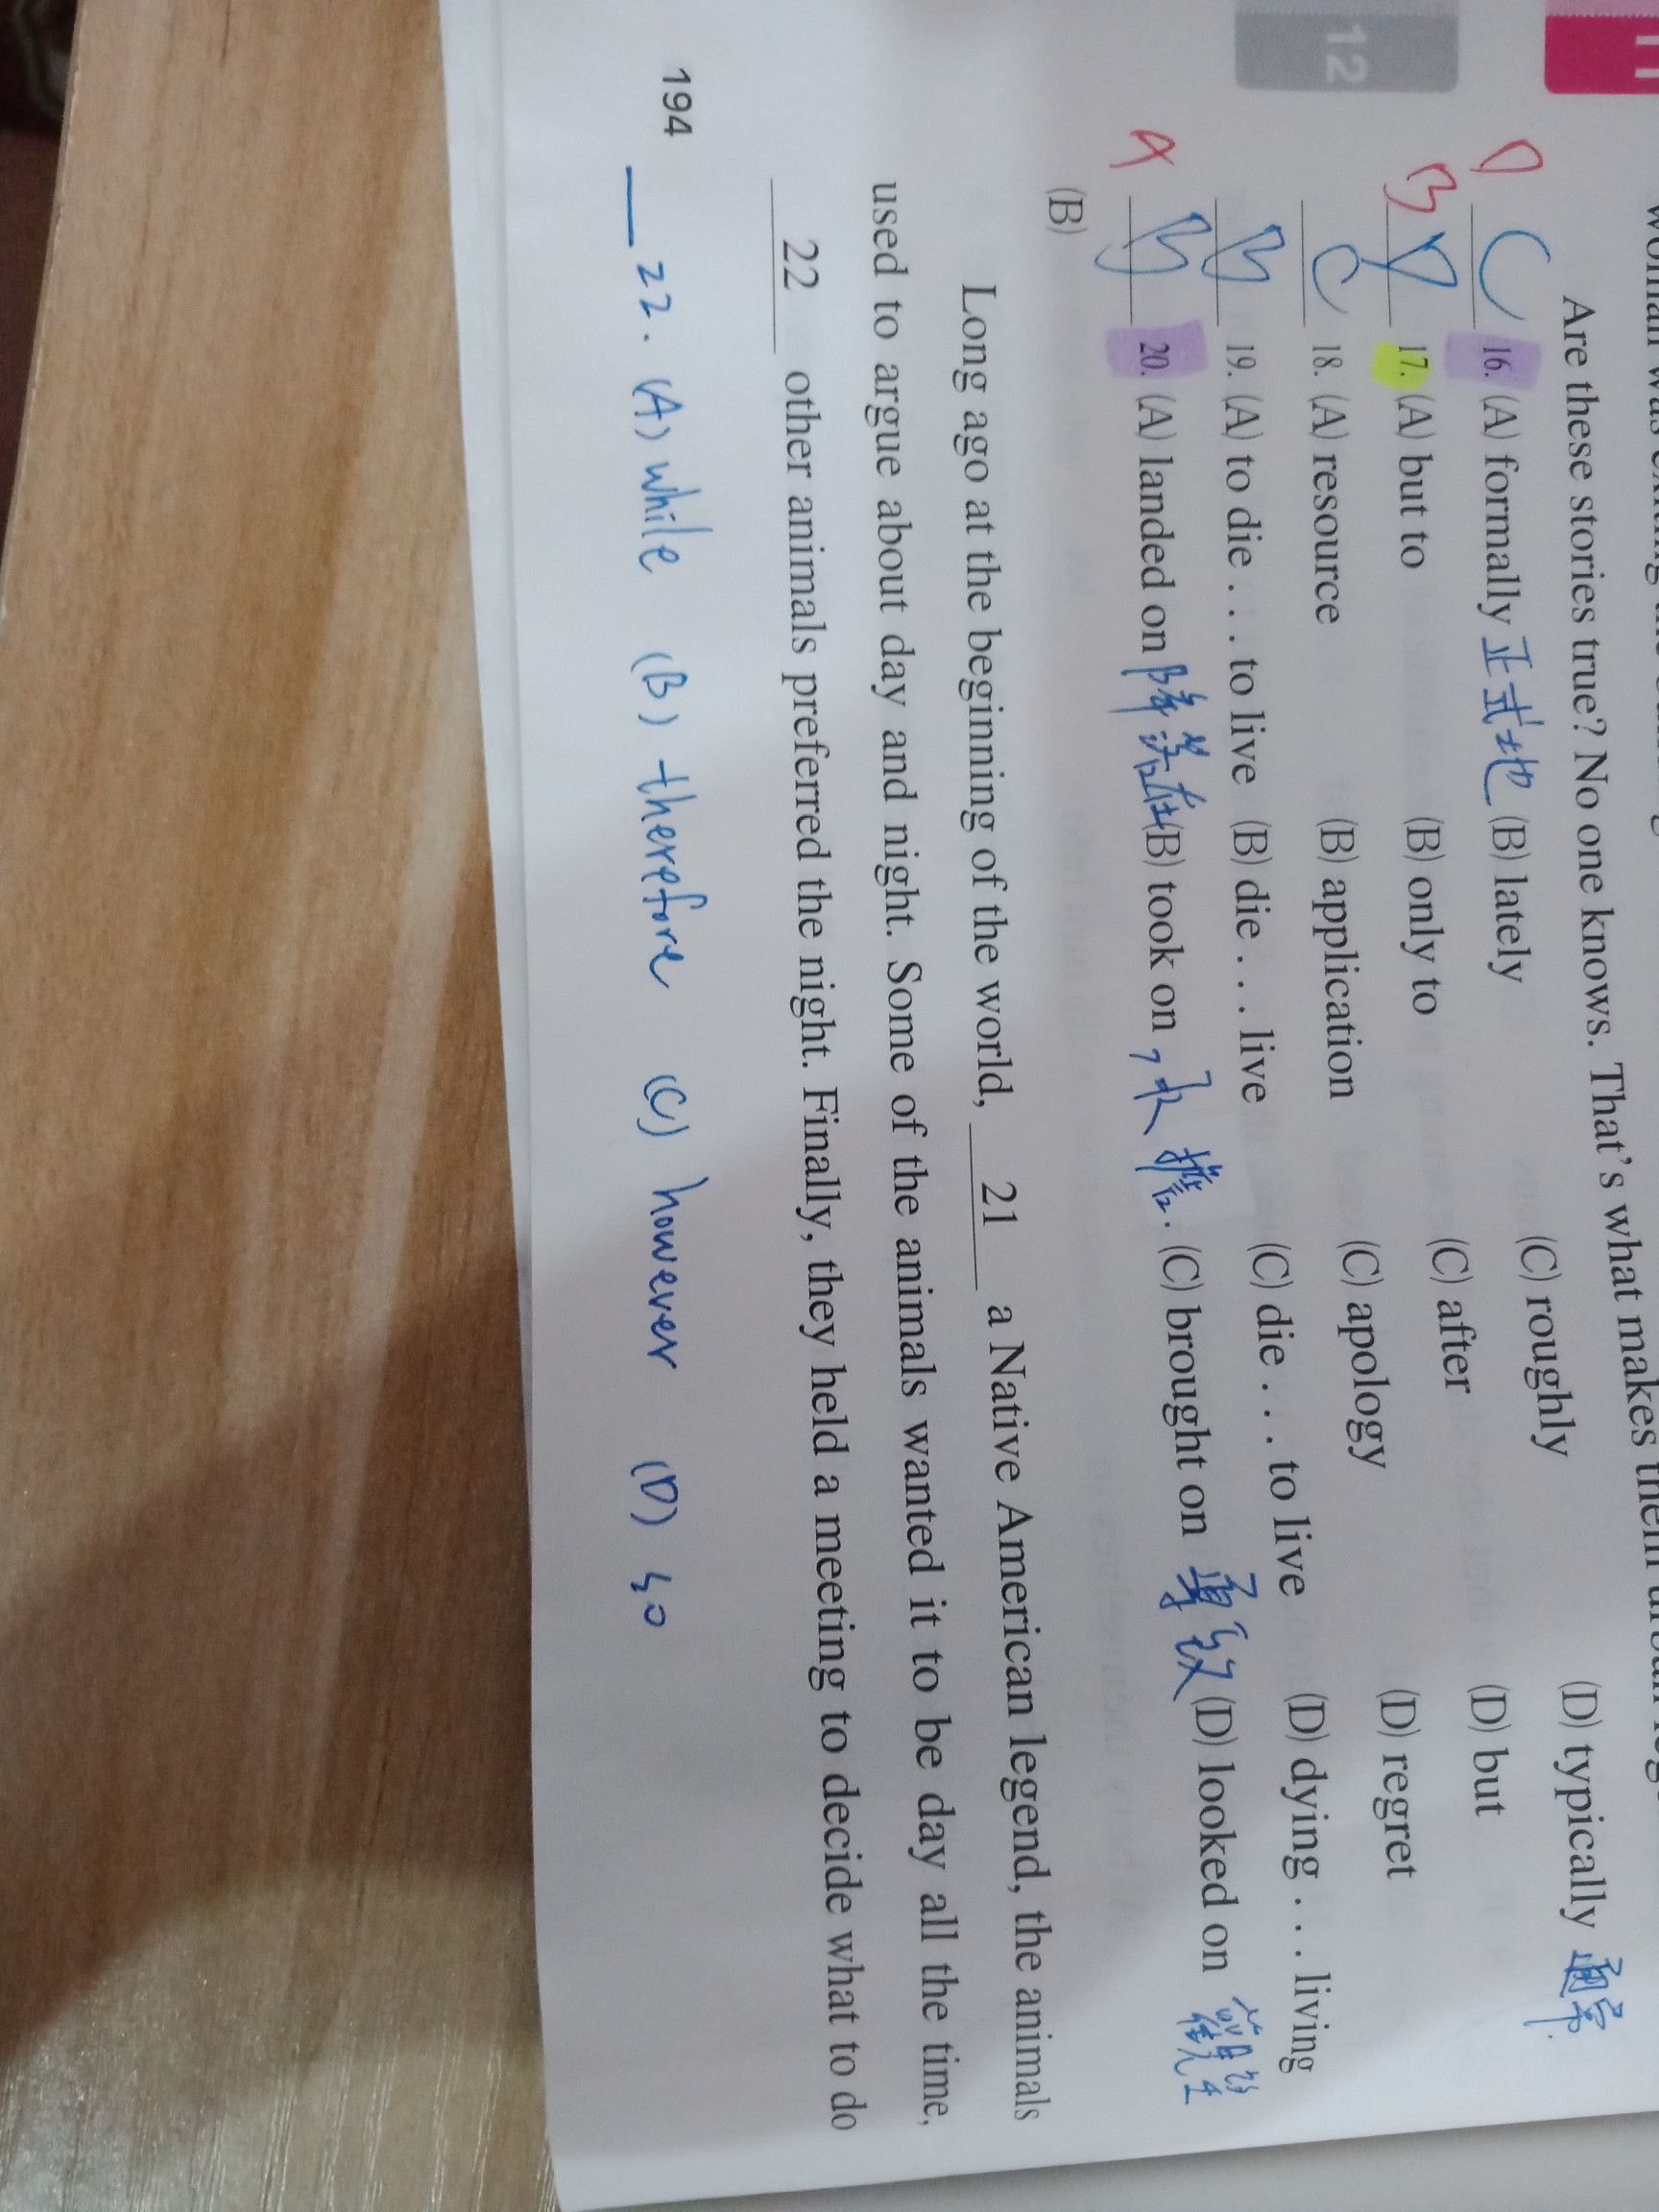 11
12
Are these stories true? No one knows. That's what makes them urban
D C 16. (A) formally 正式地 (B) lately (C) roughly (D) typically 通常.
B D 17. (A) but to (B) only to (C) after (D) but
C 18. (A) resource (B) application (C) apology (D) regret
B 19. (A) to die . . . to live (B) die . . . live (C) die . . . to live (D) dying . . . living
A B 20. (A) landed on 降落在 (B) took on 承擔. (C) brought on 導致 (D) looked on
(B)
Long ago at the beginning of the world, 21 a Native American legend, the animals
used to argue about day and night. Some of the animals wanted it to be day all the time,
22 other animals preferred the night. Finally, they held a meeting to decide what to do
194
22. (A) while (B) therefore (C) however (D) so